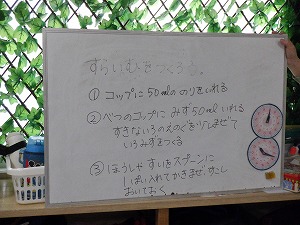 すらいむをつくろう。
① コップに50mlののりをいれる
② べつのコップに みず50ml いれる
すきないろのえのぐを少しまぜて
いろみずをつくる
③ ほうしゃ すいをスプーンに
いっぱい入れてかきまぜ すこし
おいておく